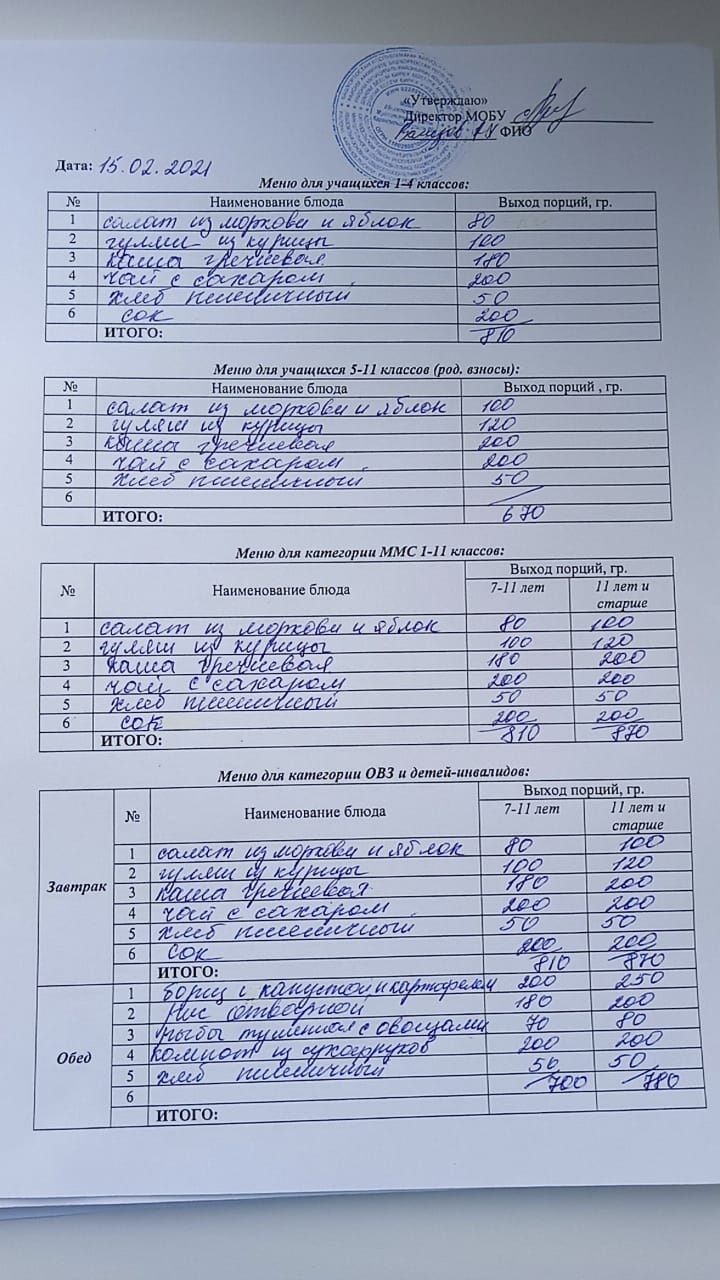 «Утверждаю»
Директор МОБУ
ФИО
Дата: 15.02.2021
Меню для учащихся 1-4 классов:
№ Наименование блюда Выход порций, гр.
1 салат из моркови и яблок 80
2 гуляш из курицы 100
3 каша гречневая 180
4 чай с сахаром 200
5 хлеб пшеничный 50
6 сок 200
ИТОГО: 810
Меню для учащихся 5-11 классов (род. взносы):
№ Наименование блюда Выход порций , гр.
1 салат из моркови и яблок 100
2 гуляш из курицы 120
3 каша гречневая 200
4 чай с сахаром 200
5 хлеб пшеничный 50
6
ИТОГО: 670
Меню для категории ММС 1-11 классов:
№ Наименование блюда Выход порций, гр.
7-11 лет 11 лет и старше
1 салат из моркови и яблок 80 100
2 гуляш из курицы 100 120
3 каша гречневая 180 200
4 чай с сахаром 200 200
5 хлеб пшеничный 50 50
6 сок 200 200
ИТОГО: 810 870
Меню для категории ОВЗ и детей-инвалидов:
№ Наименование блюда Выход порций, гр.
7-11 лет 11 лет и старше
Завтрак
1 салат из моркови и яблок 80 100
2 гуляш из курицы 100 120
3 каша гречневая 180 200
4 чай с сахаром 200 200
5 хлеб пшеничный 50 50
6 сок 200 200
ИТОГО: 810 870
Обед
1 борщ с капустой и картофелем 200 250
2 Рис отварной 180 200
3 рыба тушенная с овощами 70 80
4 компот из сухофруков 200 200
5 хлеб пшеничный 50 50
6 700 780
ИТОГО: